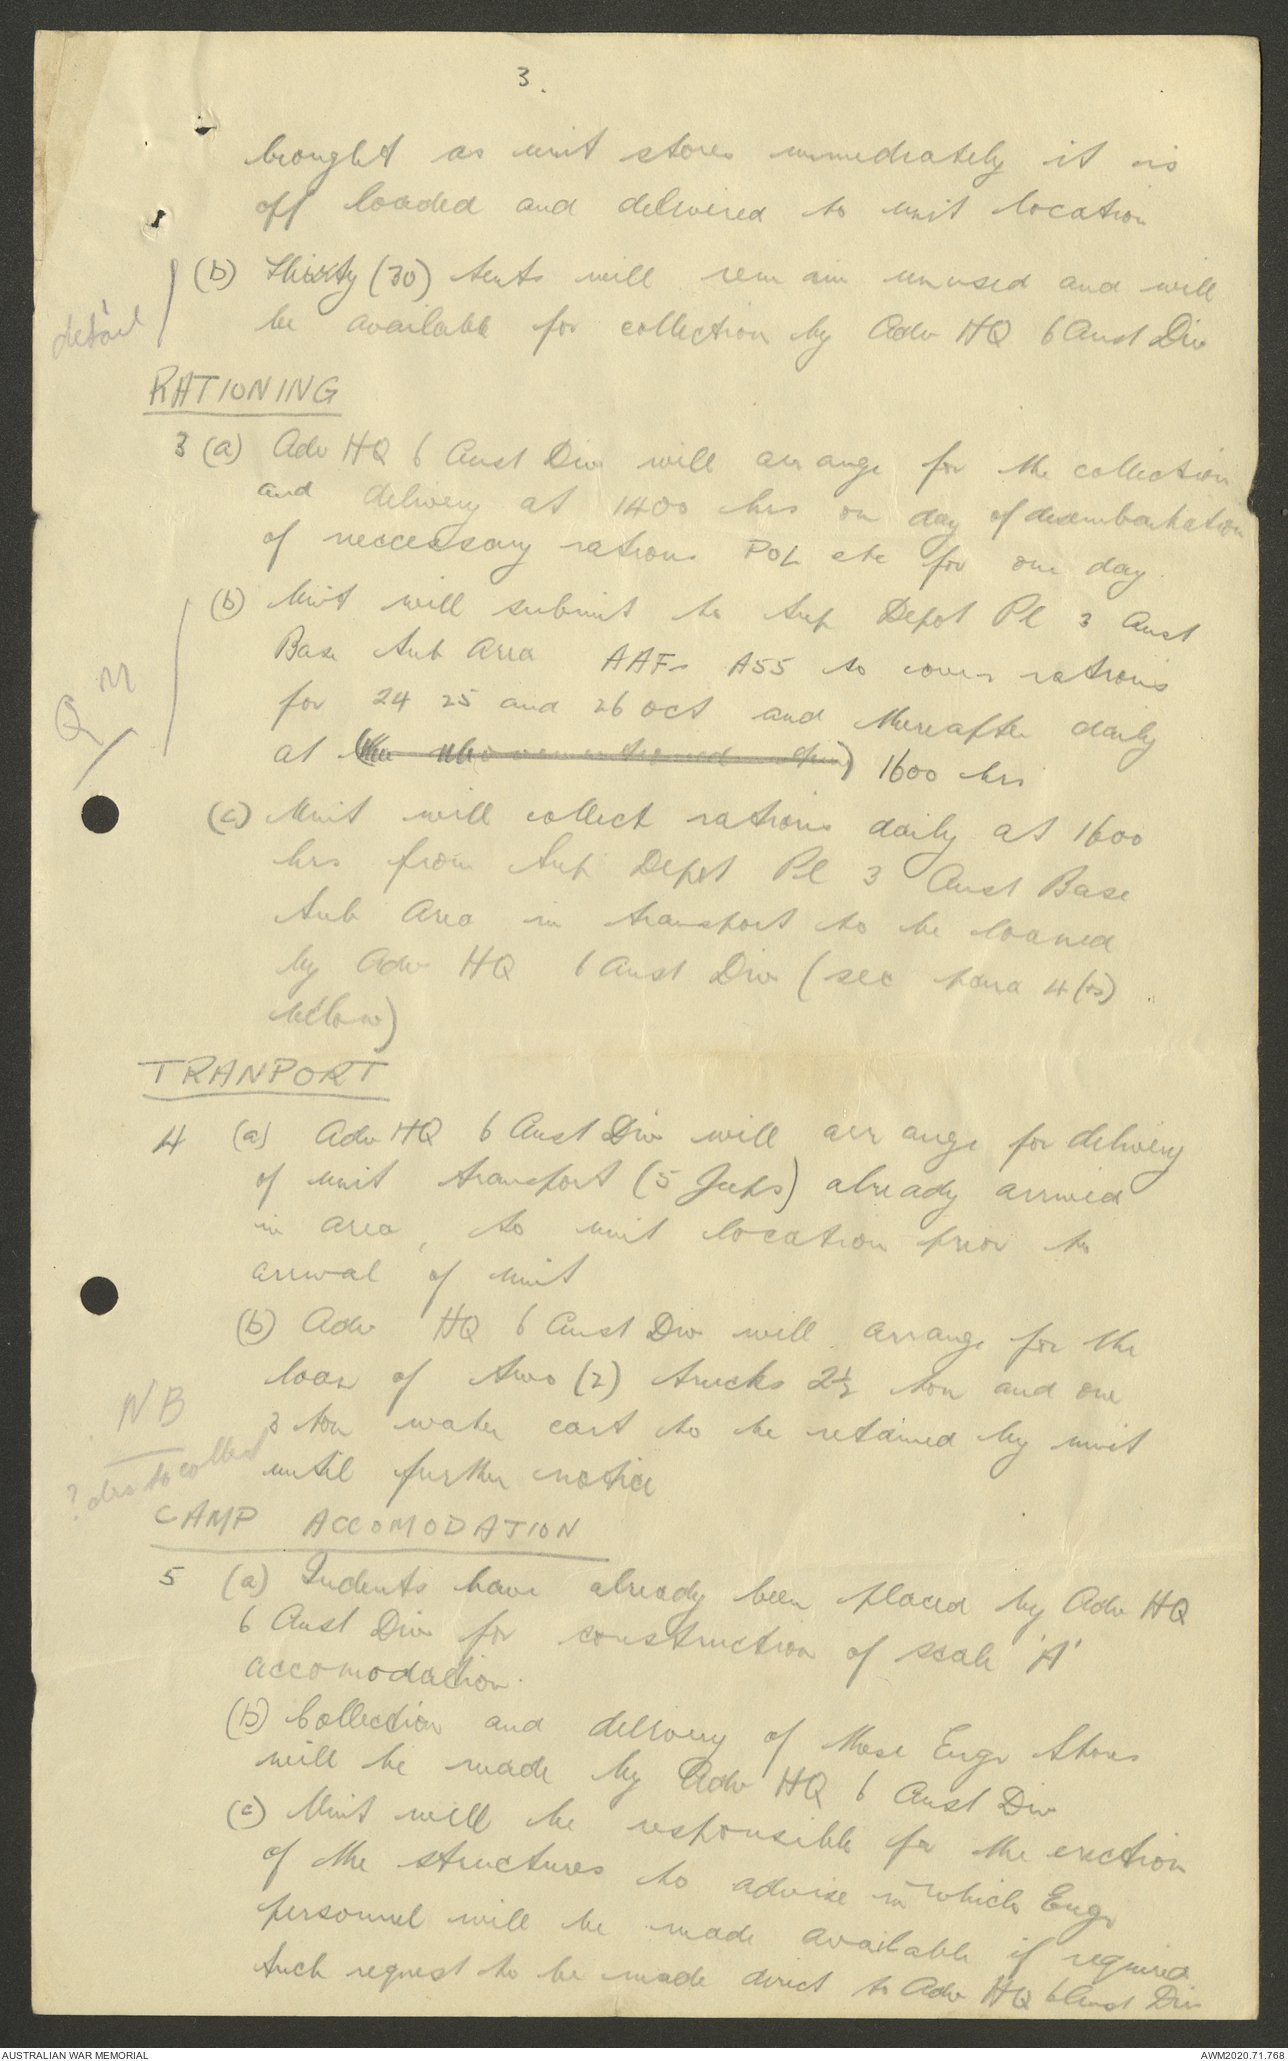 3.
brought as unit stores immediately it is
off loaded and delivered to unit location
(b) Thirty (30) tents will remain unused and will
be available for collection by Adv HQ 6 Aust Div
detail
RATIONING
3 (a) Adv HQ 6 Aust Div will arrange for the collection
and delivery at 1400 hrs on day of disembarkation
of neccessary rations POL etc for one day
(b) Unit will submit to Sup Depot Pl 3 Aust
Base Sub Area AAFs A55 to cover rations
for 24 25 and 26 Oct and thereafter daily
at 1600 hrs
QM
(c) Unit will collect rations daily at 1600
hrs from Sup Depot Pl 3 Aust Base
Sub Area in transport to be loaned
by Adv HQ 6 Aust Div (see para 4(b)
below)
TRANPORT
4 (a) Adv HQ 6 Aust Div will arrange for delivery
of unit transport (5 Jeeps) already arrived
in area, to unit location prior to
arrival of unit
(b) Adv HQ 6 Aust Div will arrange for the
loan of two (2) trucks 2½ ton and one
3 ton water cart to be retained by unit
until further notice
NB
? to collect
CAMP ACCOMODATION
5 (a) Indents have already been placed by Adv HQ
6 Aust Div for construction of scale 'A'
accomodation.
(b) Collection and delivery of these Engr Stores
will be made by Adv HQ 6 Aust Div
(c) Unit will be responsible for the erection
of the structures to advise in which Engr
personnel will be made available if required
Such request to be made direct to Adv HQ 6 Aust Div
AUSTRALIAN WAR MEMORIAL
AWM2020.71.768